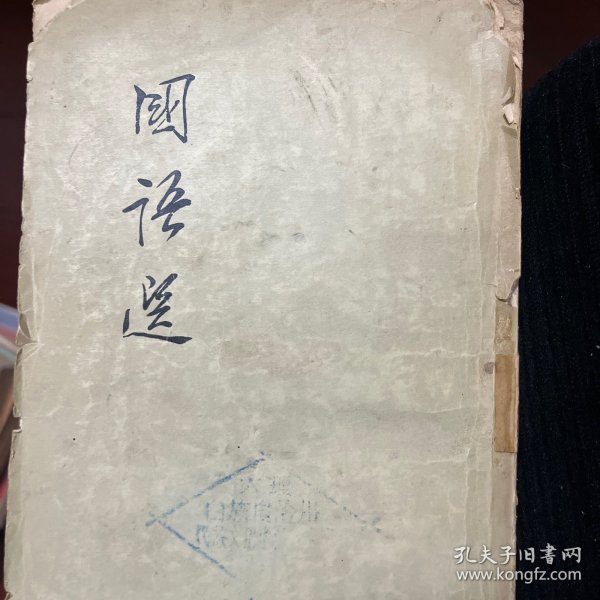 國語選
孔夫子旧书网
www.kongfz.com